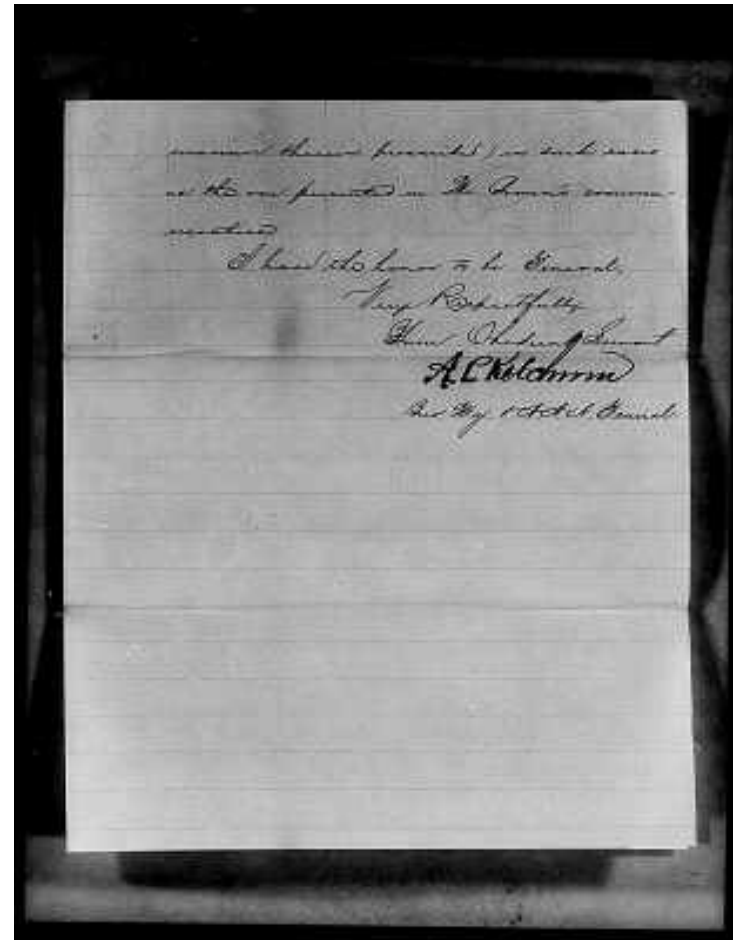 manner therein prescribed) in such cases
as the one presented in Mr commu-
nication
I have the honor to be General,
Very Respectfully
Your Obedient Servant
A. C. Ketchum
Maj & A A A. General